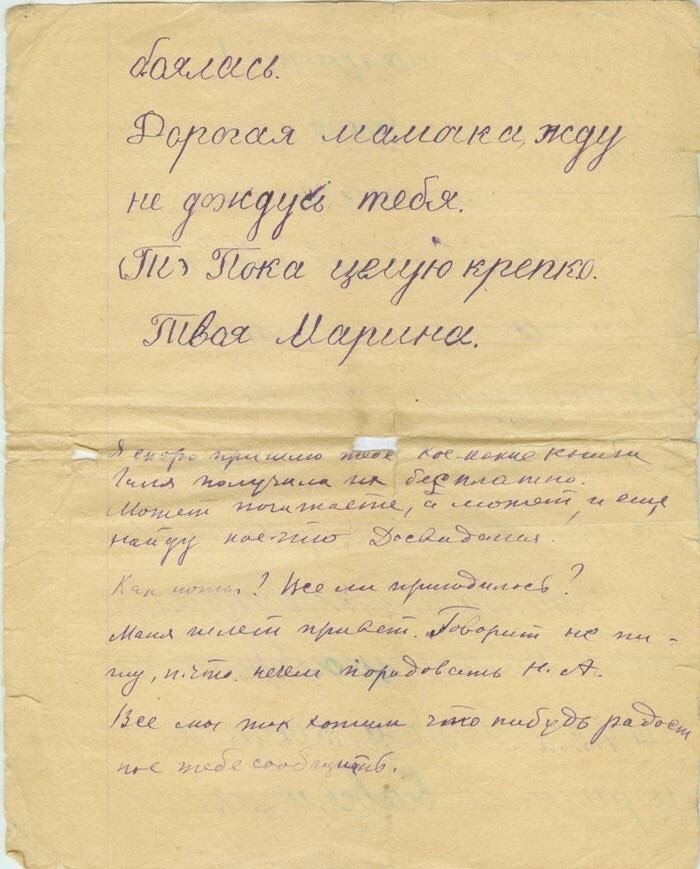 боялась.
Дорогая мамочка, жду
не дождусь тебя.
(Т) Пока целую крепко.
Твоя Марина.
Я скоро пришлю тебе кое-какие книги
Галя получила их бесплатно.
Может почитаете, а может и еще
найду кое-что Досвидания!
Как ? Все ли пригодилось?
Маня шлет привет. Говорит не пи-
шу, п.что нечем порадовать Н. А.
Все мы так хотим что нибудь радост
ное тебе сообщить.